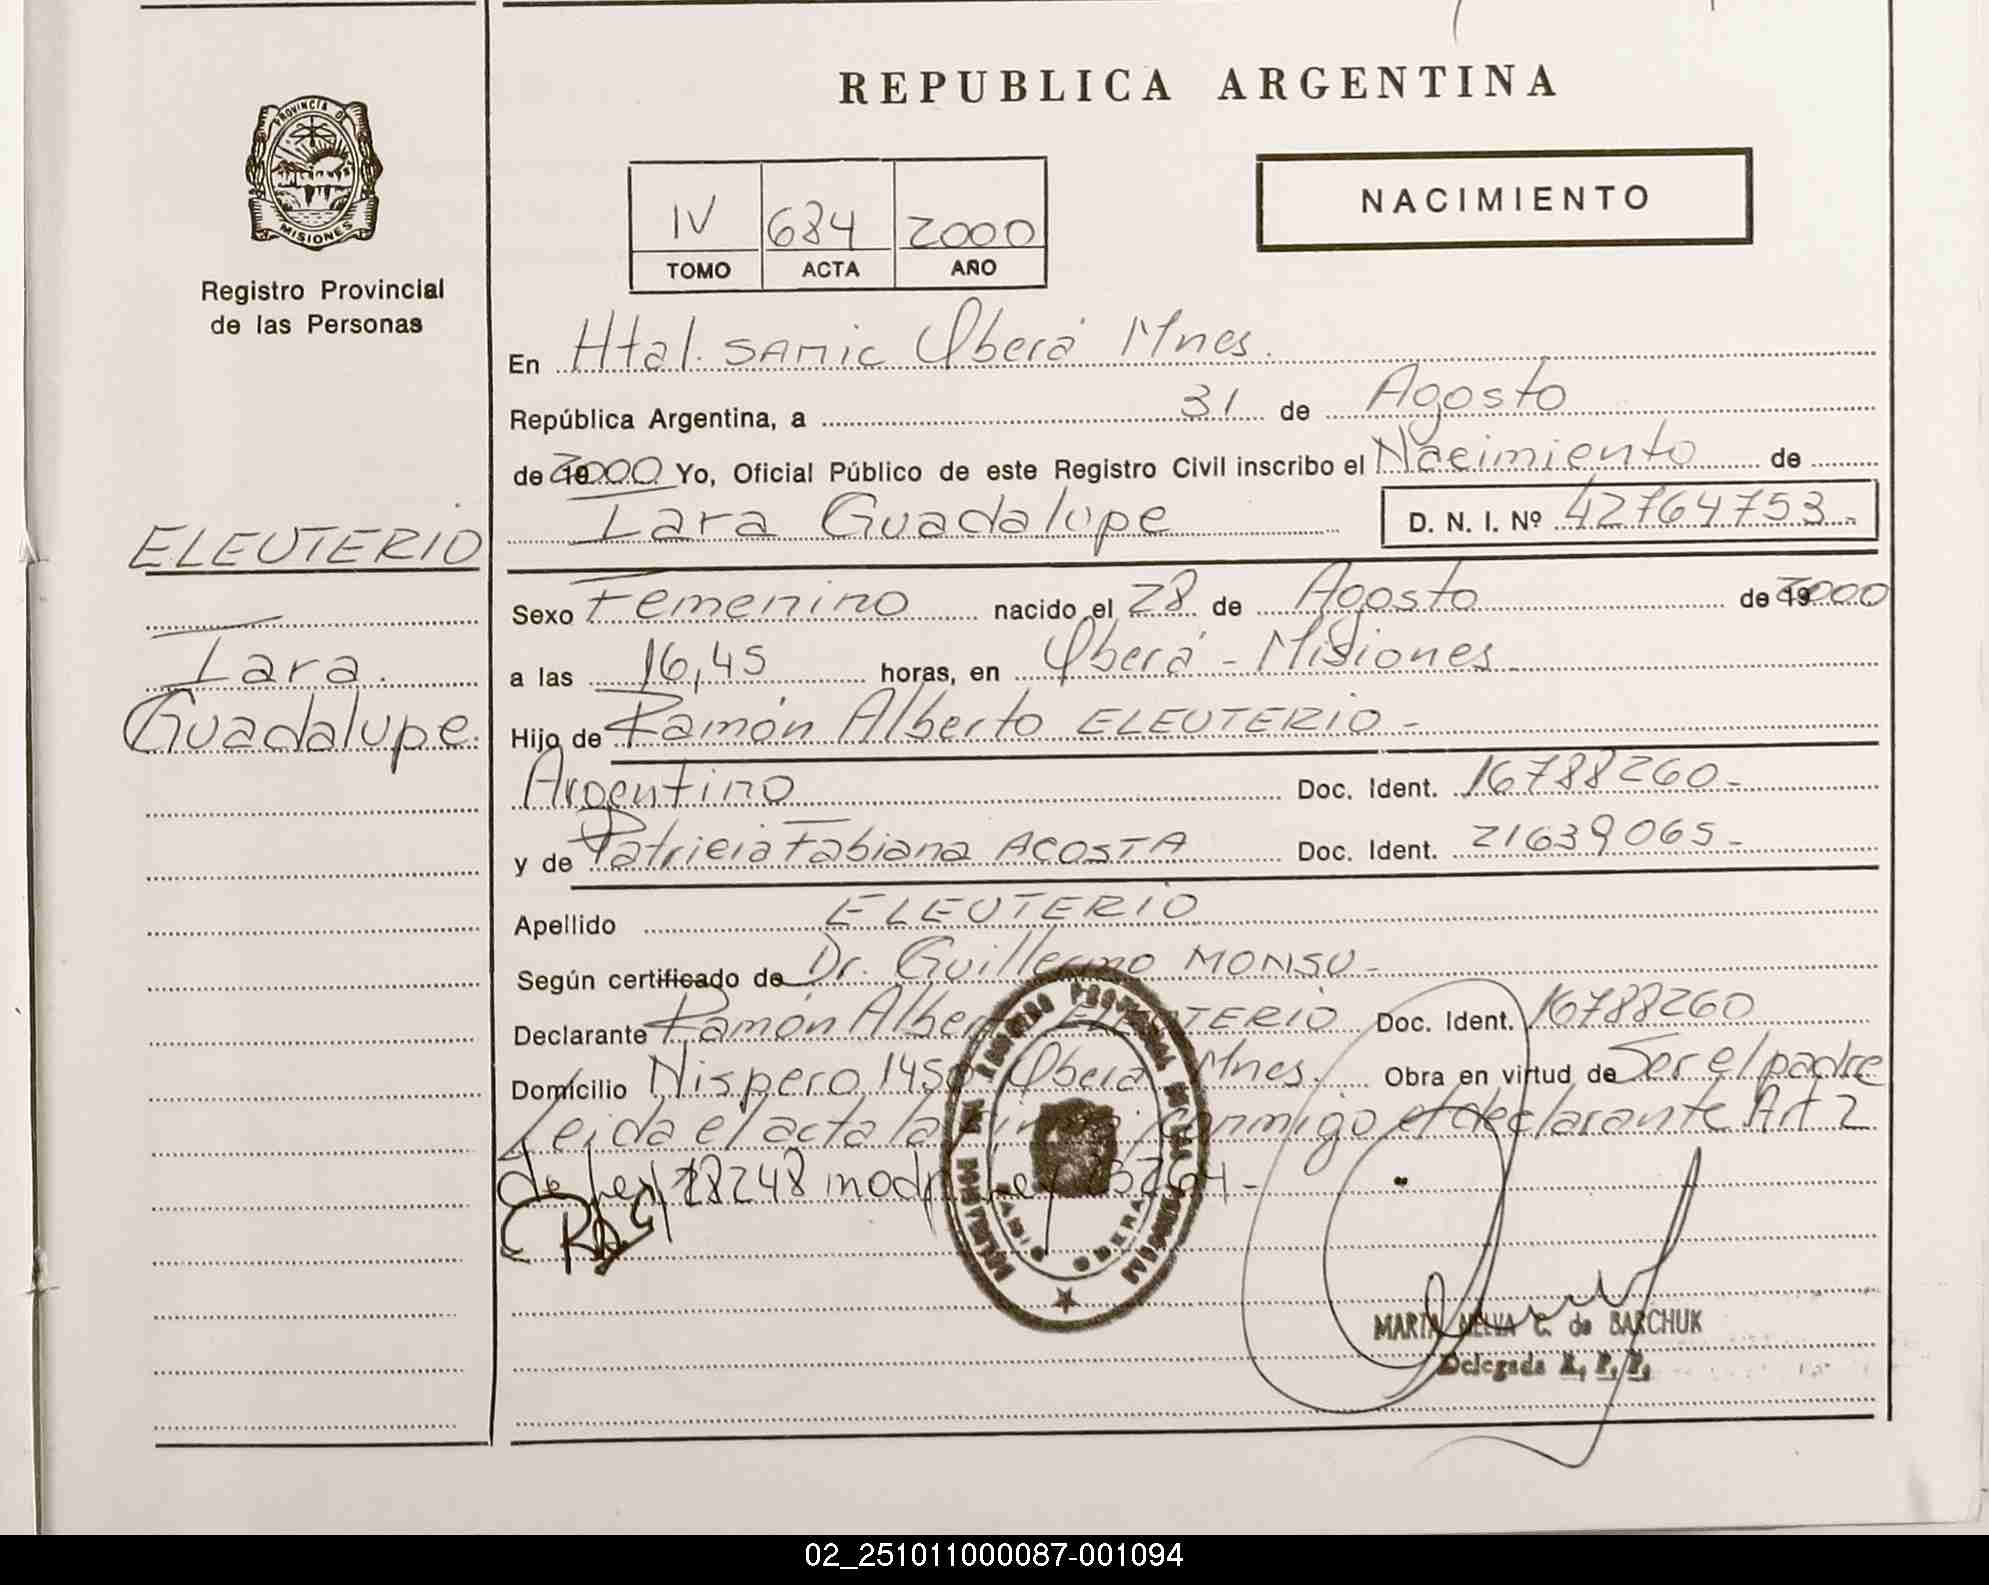 REPUBLICA ARGENTINA
PROVINCIA DE
MISIONES
Registro Provincial
de las Personas
IV 684 2000
TOMO ACTA AÑO
NACIMIENTO
En Htal. SAMIC Oberá Mnes.
República Argentina, a 31 de Agosto
de 2000 Yo, Oficial Público de este Registro Civil inscribo el Nacimiento de
Iara Guadalupe D. N. I. Nº 42764753-
ELEUTERIO
Iara
Guadalupe.
Sexo Femenino nacido el 28 de Agosto de 2000
a las 16,45 horas, en Oberá - Misiones
Hijo de Ramón Alberto ELEUTERIO -
Argentino Doc. Ident. 16788260-
y de Patricia Fabiana ACOSTA Doc. Ident. 21639065-
Apellido ELEUTERIO
Según certificado de Dr. Guillermo MONSU-
Declarante Ramón Alberto ELEUTERIO Doc. Ident. 16788260
Domicilio Nispero 1450 Oberá Mnes. Obra en virtud de Ser el padre
Leida el acta la firma conmigo el declarante Art 2
de Ley 18248 modf Ley 23264-
OBERA
MARTA NELVA C. de BARCHUK
Delegada R. P. P.
02_251011000087-001094